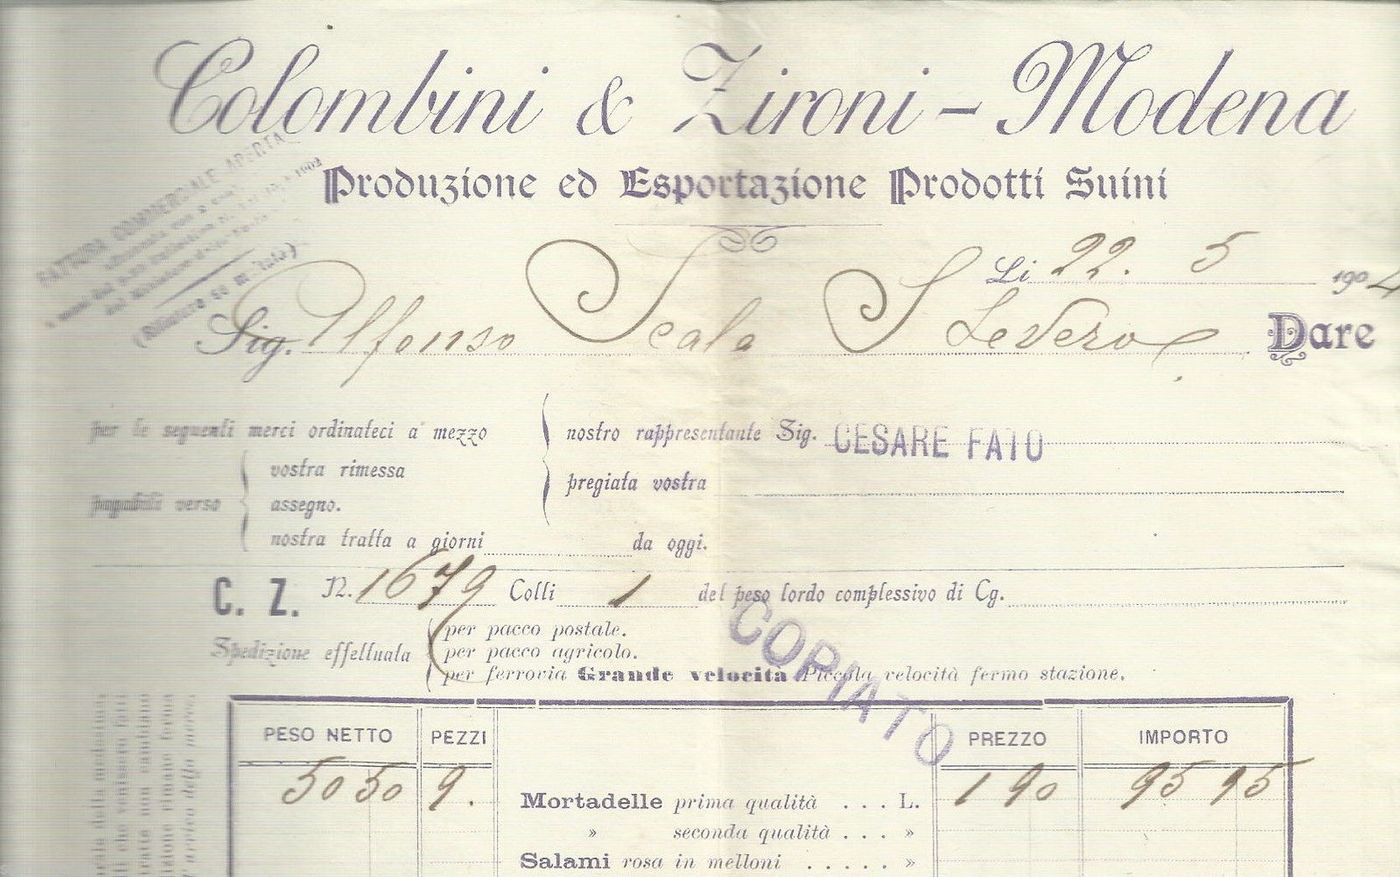 Colombini & Zironi - Modena
Produzione ed Esportazione Prodotti Suini
FATTURA COMMERCIALE APERTA
Li 22. 5 1904
Sig. Alfonso Scala S Severo Dare
per le seguenti merci ordinateci a mezzo
nostro rappresentante Sig. CESARE FATO
pregiata vostra
pagabili verso
vostra rimessa
assegno.
nostra tratta a giorni da oggi.
C. Z. N. 1679 Colli 1 del peso lordo complessivo di Cg.
Spedizione effettuata
per pacco postale.
per pacco agricolo.
per ferrovia Grande velocità Piccola velocità fermo stazione.
COPIATO
PESO NETTO PEZZI PREZZO IMPORTO
50 50 9. Mortadelle prima qualità . . . L. 1 90 95 95
» seconda qualità . . . »
Salami rosa in melloni . . . . . »